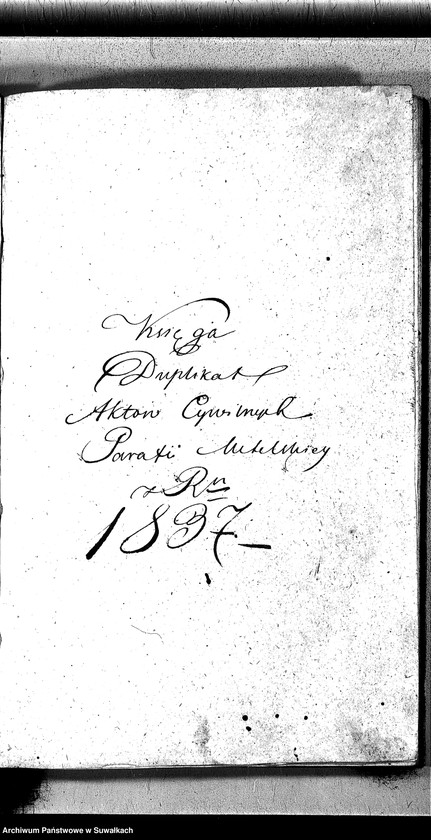 Księga
Duplikat
Aktow Cywilnych
Parafii Metelskiey
z Ru
1837
Archiwum Państwowe w Suwałkach